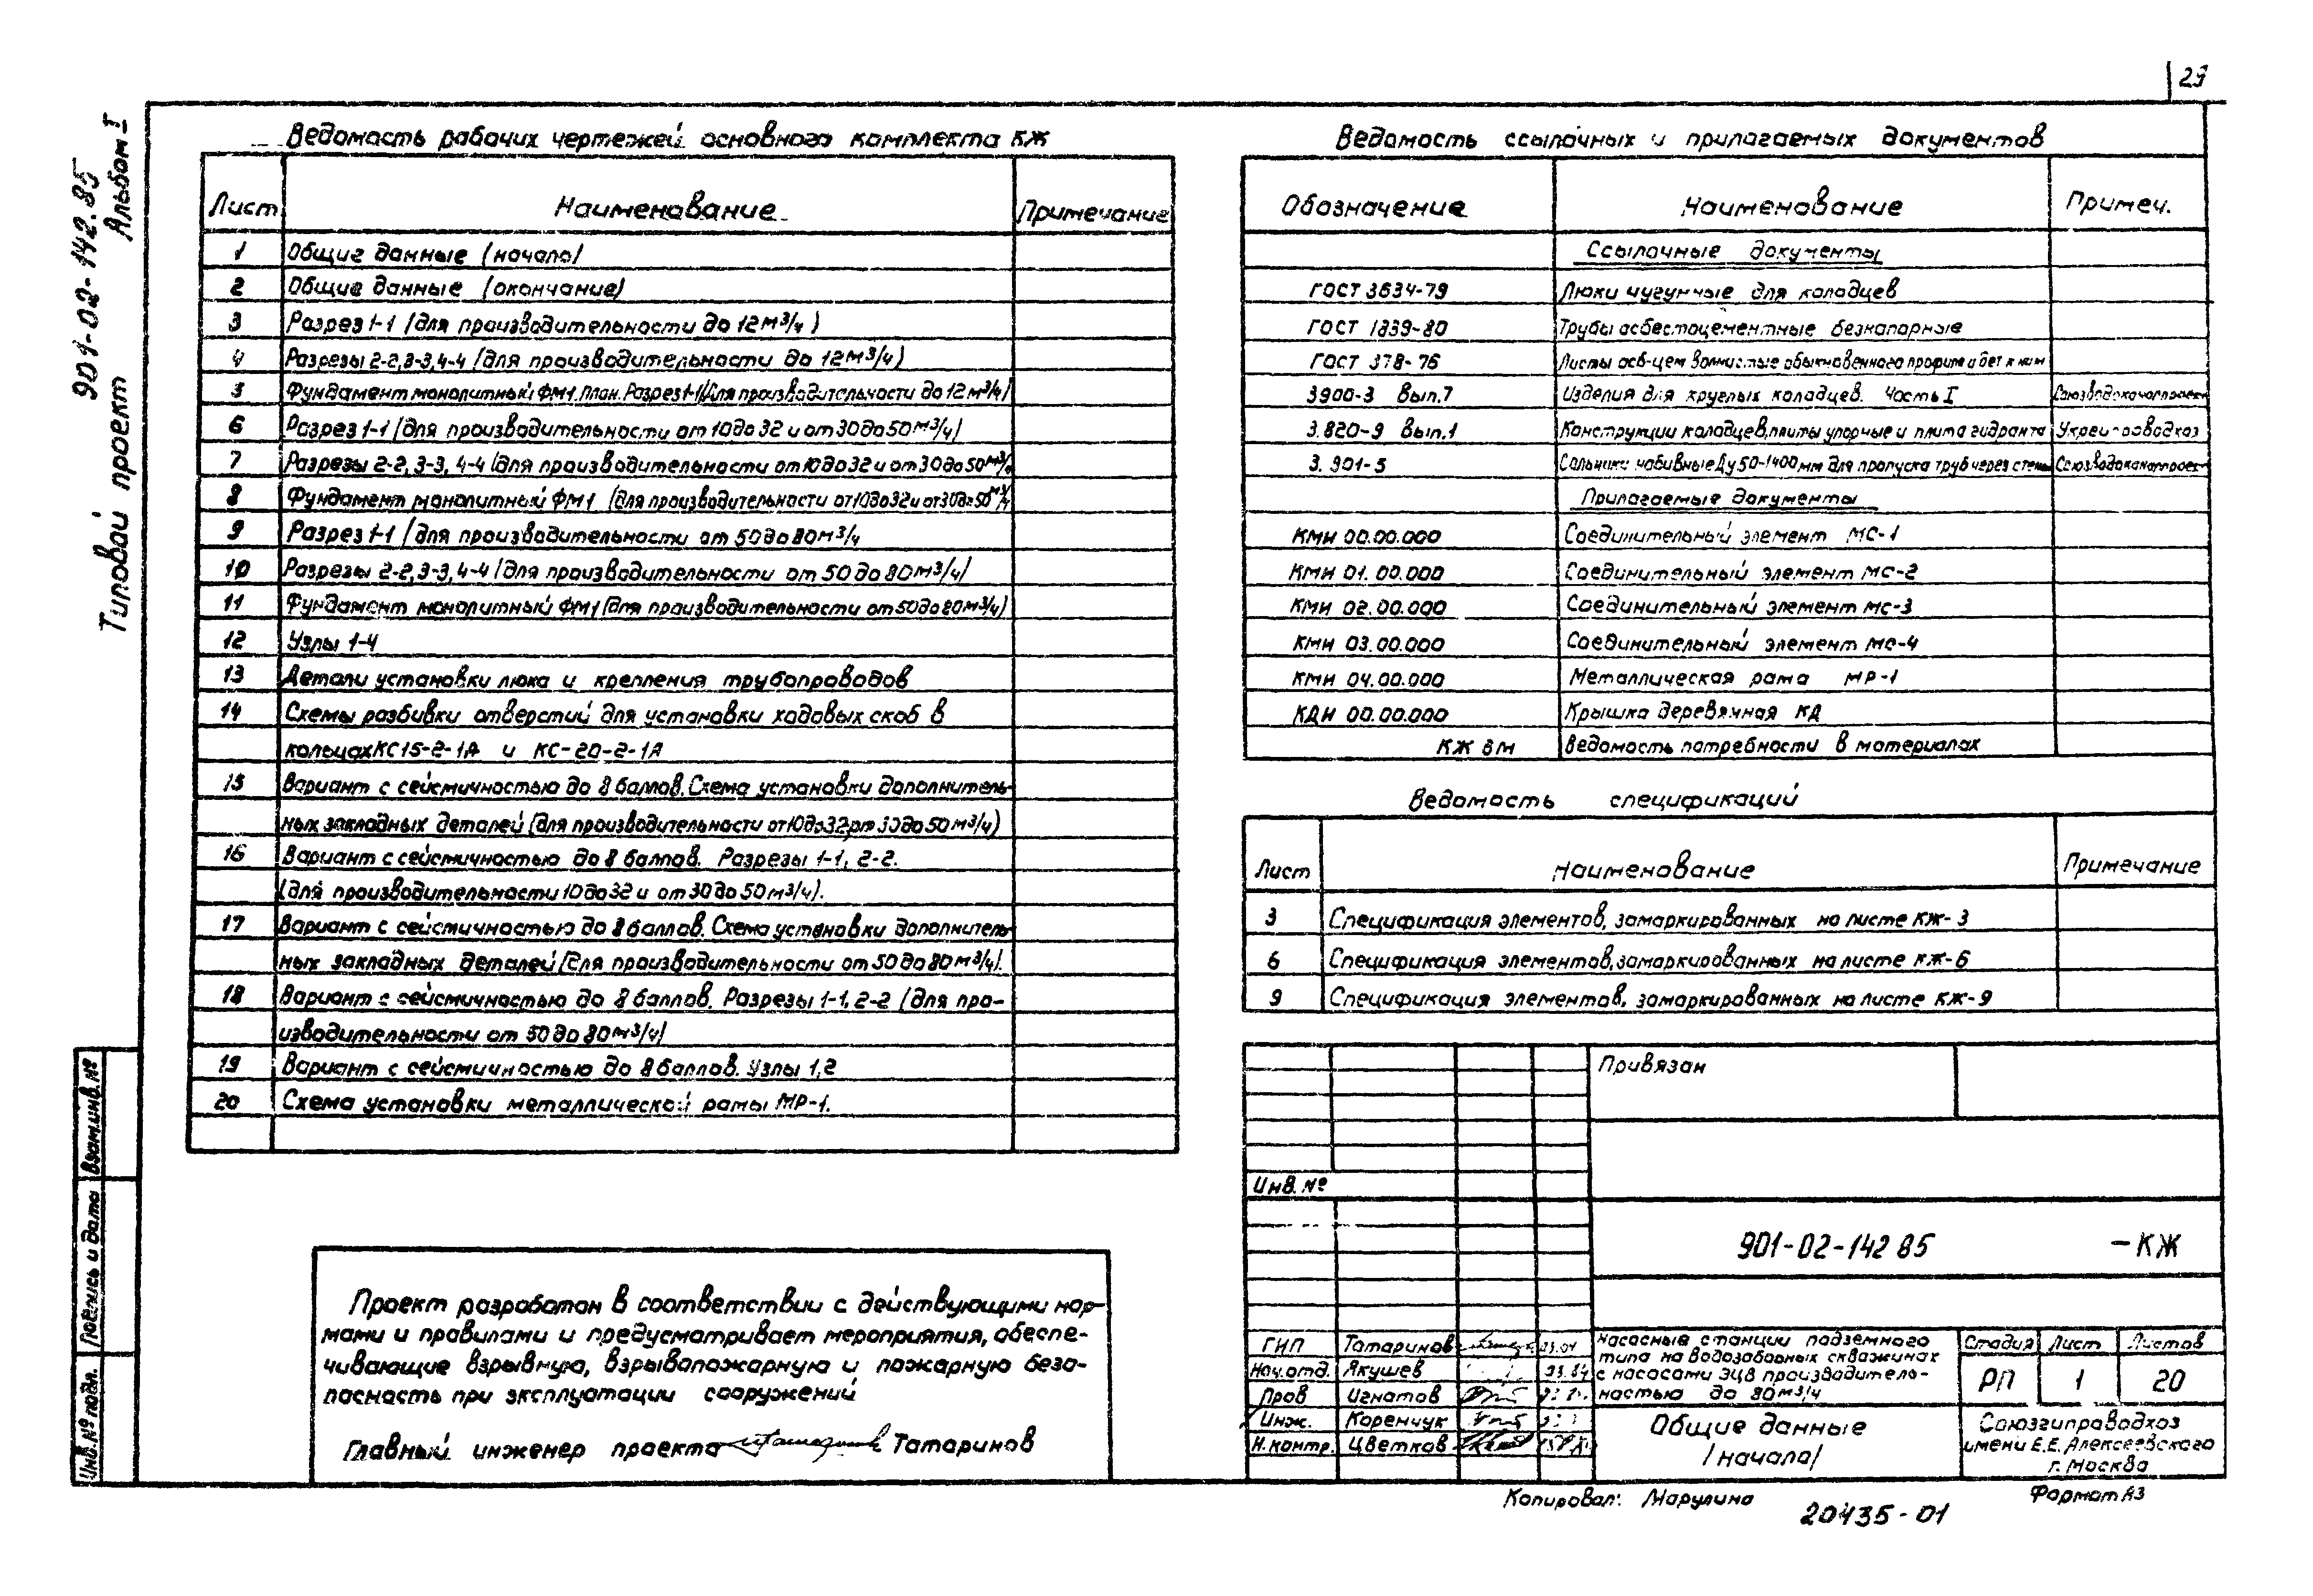 29
Типовой проект 901-02-142.85
Альбом I
Ведомость рабочих чертежей основного комплекта КЖ
Лист Наименование Примечание
1 Общие данные (начало)
2 Общие данные (окончание)
3 Разрез 1-1 (для производительности до 12 м³/ч)
4 Разрезы 2-2, 3-3, 4-4 (для производительности до 12 м³/ч)
5 Фундамент монолитный ФМ1. План. Разрез 1-1 (для производительности до 12 м³/ч)
6 Разрез 1-1 (для производительности от 10 до 32 и от 30 до 50 м³/ч)
7 Разрезы 2-2, 3-3, 4-4 (для производительности от 10 до 32 и от 30 до 50 м³/ч
8 Фундамент монолитный ФМ1 (для производительности от 10 до 32 и от 30 до 50 м³/ч
9 Разрез 1-1 (для производительности от 50 до 80 м³/ч
10 Разрезы 2-2, 3-3, 4-4 (для производительности от 50 до 80 м³/ч)
11 Фундамент монолитный ФМ1 (для производительности от 50 до 80 м³/ч)
12 Узлы 1-4
13 Детали установки люка и крепления трубопроводов
14 Схемы разбивки отверстий для установки ходовых скоб в
кольцах КС15-2-1А и КС-20-2-1А
15 Вариант с сейсмичностью до 8 баллов. Схема установки дополнитель-
ных закладных деталей (для производительности от 10 до 32, от 30 до 50 м³/ч)
16 Вариант с сейсмичностью до 8 баллов. Разрезы 1-1, 2-2.
(для производительности 10 до 32 и от 30 до 50 м³/ч).
17 Вариант с сейсмичностью до 8 баллов. Схема установки дополнитель-
ных закладных деталей (для производительности от 50 до 80 м³/ч).
18 Вариант с сейсмичностью до 8 баллов. Разрезы 1-1, 2-2 (для про-
изводительности от 50 до 80 м³/ч)
19 Вариант с сейсмичностью до 8 баллов. Узлы 1,2
20 Схема установки металлической рамы МР-1.
Ведомость ссылочных и прилагаемых документов
Обозначение Наименование Примеч.
Ссылочные документы
ГОСТ 3634-79 Люки чугунные для колодцев
ГОСТ 1839-80 Трубы асбестоцементные безнапорные
ГОСТ 378-76 Листы асб-цем волнистые обыкновенного профиля и дет к ним
3900-3 Вып.7 Изделия для круглых колодцев. Часть I Союзводоканалпроект
3.820-9 Вып.1 Конструкции колодцев, плиты упорные и плита гидранта Укргипроводхоз
3.901-5 Сальники набивные Ду 50-1400 мм для пропуска труб через стены Союзводоканалпроект
Прилагаемые документы
КМИ 00.00.000 Соединительный элемент МС-1
КМИ 01.00.000 Соединительный элемент МС-2
КМИ 02.00.000 Соединительный элемент МС-3
КМИ 03.00.000 Соединительный элемент МС-4
КМИ 04.00.000 Металлическая рама МР-1
КДИ 00.00.000 Крышка деревянная КД
КЖ ВМ Ведомость потребности в материалах
Ведомость спецификаций
Лист Наименование Примечание
3 Спецификация элементов, замаркированных на листе КЖ-3
6 Спецификация элементов, замаркированных на листе КЖ-6
9 Спецификация элементов, замаркированных на листе КЖ-9
Привязан
Инв. №
901-02-142 85 -КЖ
ГИП Татаринов
Нач.отд. Якушев
Пров Игнатов
Инж. Коренчук
Н.контр. Цветков
Насосные станции подземного
типа на водозаборных скважинах
с насосами ЭЦВ производитель-
ностью до 80 м³/ч
Стадия Лист Листов
РП 1 20
Общие данные
(начало)
Союзгипроводхоз
имени Е.Е. Алексеевского
г. Москва
Проект разработан в соответствии с действующими нор-
мами и правилами и предусматривает мероприятия, обеспе-
чивающие взрывную, взрывопожарную и пожарную безо-
пасность при эксплуатации сооружений
Главный инженер проекта Татаринов
Взам.инв.№
Подпись и дата
Инв.№ подл.
Копировал: Марулина
20435-01
Формат А3